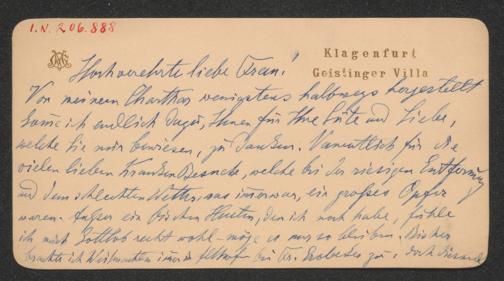 I.N. 206.888
Klagenfurt
Geistinger Villa
Hochverehrte liebe Frau!
Von meinem Katarrh wenigstens halbwegs hergestellt
komme ich endlich dazu, Ihnen für Ihre Güte und Liebe,
welche Sie mir bewiesen, zu danken. Namentlich für die
vielen lieben Krankenbesuche, welche bei der riesigen Entfernung
und dem schlechten Wetter, was immer war, ein großes Opfer
waren. Außer ein bischen Husten, den ich noch habe, fühle
ich mich Gottlob recht wohl - möge es nur so bleiben. Bisher
brachte ich Weihnachten immer in bei Fr. zu, doch diesmal